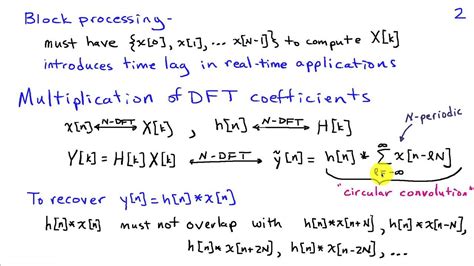 Block processing- 2
must have {x[0], x[1], ... x[N-1]} to compute X[k]
introduces time lag in real-time applications
Multiplication of DFT coefficients
x[n] <-N-DFT-> X[k], h[n] <-N-DFT-> H[k]
N-periodic
Y[k] = H[k] X[k] <-N-DFT-> ỹ[n] = h[n] * ∑_{l=-∞}^{∞} x[n-lN]
"circular convolution"
To recover y[n] = h[n] * x[n]
h[n] * x[n] must not overlap with h[n] * x[n+N], h[n] * x[n-N],
h[n] * x[n+2N], h[n] * x[n-2N], ...